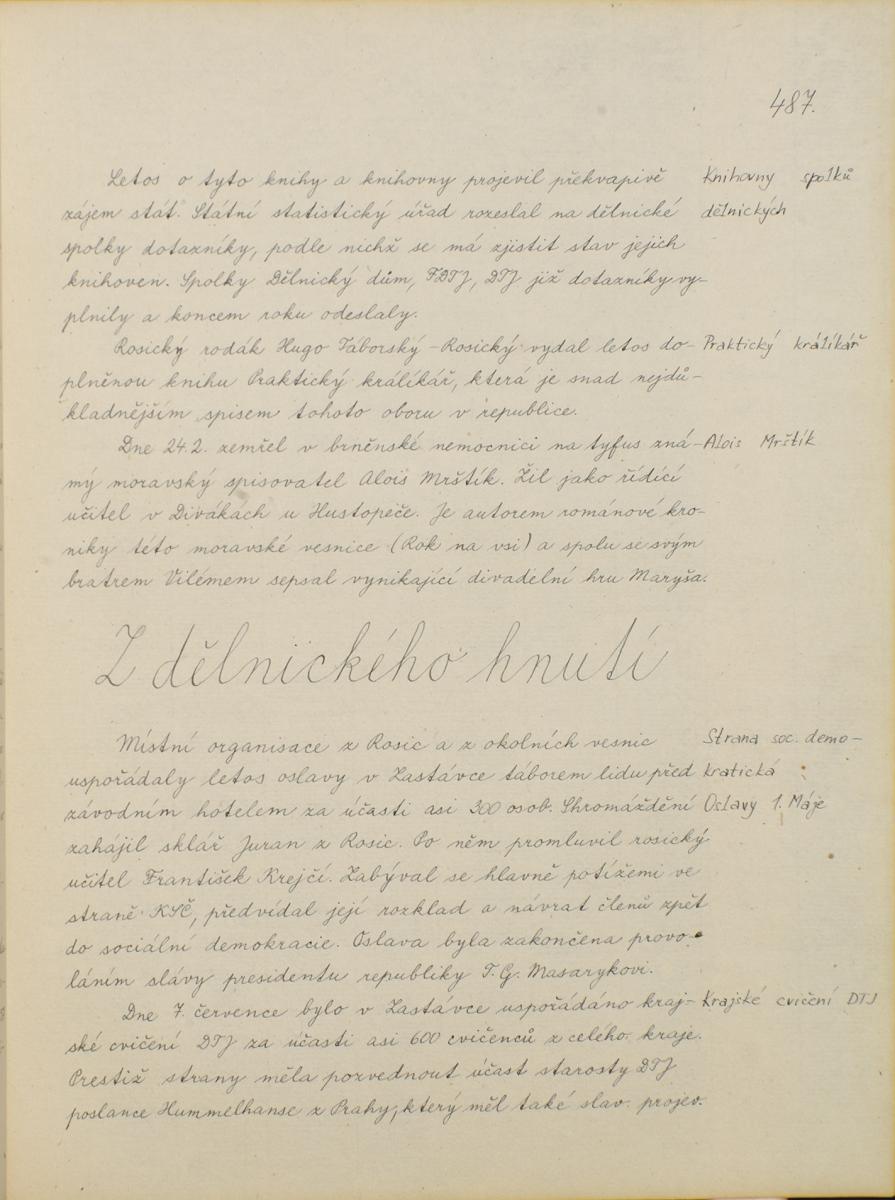 487.
Letos o tyto knihy a knihovny projevil překvapivě
Knihovny spolků
zájem stát. Státní statistický úřad rozeslal na dělnické
dělnických
spolky dotazníky, podle nichž se má zjistit stav jejich
knihoven. Spolky Dělnický dům, FDTJ, DTJ již dotazníky vy-
plnily a koncem roku odeslaly.
Rosický rodák Hugo Táborský - Rosický vydal letos do-
Praktický králíkář
plněnou knihu Praktický králíkář, která je snad nejdů-
kladnějším spisem tohoto oboru v republice.
Dne 24.2. zemřel v brněnské nemocnici na tyfus zná-
Alois Mrštík
mý moravský spisovatel Alois Mrštík. Žil jako řídící
učitel v Divákách u Hustopeče. Je autorem románové kro-
niky této moravské vesnice (Rok na vsi) a spolu se svým
bratrem Vilémem sepsal vynikající divadelní hru Maryša.
Z dělnického hnutí
Místní organisace z Rosic a z okolních vesnic
Strana soc. demo-
uspořádaly letos oslavy v Zastávce táborem lidu před
kratická
závodním hotelem za účasti asi 300 osob. Shromáždění
Oslavy 1. Máje
zahájil sklář Juran z Rosic. Po něm promluvil rosický
učitel František Krejčí. Zabýval se hlavně potížemi ve
straně KSČ, předvídal její rozklad a návrat členů zpět
do sociální demokracie. Oslava byla zakončena provo-
láním slávy presidentu republiky T. G. Masarykovi.
Dne 7. července bylo v Zastávce uspořádáno kraj-
Krajské cvičení DTJ
ské cvičení DTJ za účasti asi 600 cvičenců z celého kraje.
Prestiž strany měla pozvednout účast starosty DTJ
poslance Hummelhanse z Prahy, který měl také slav. projev.